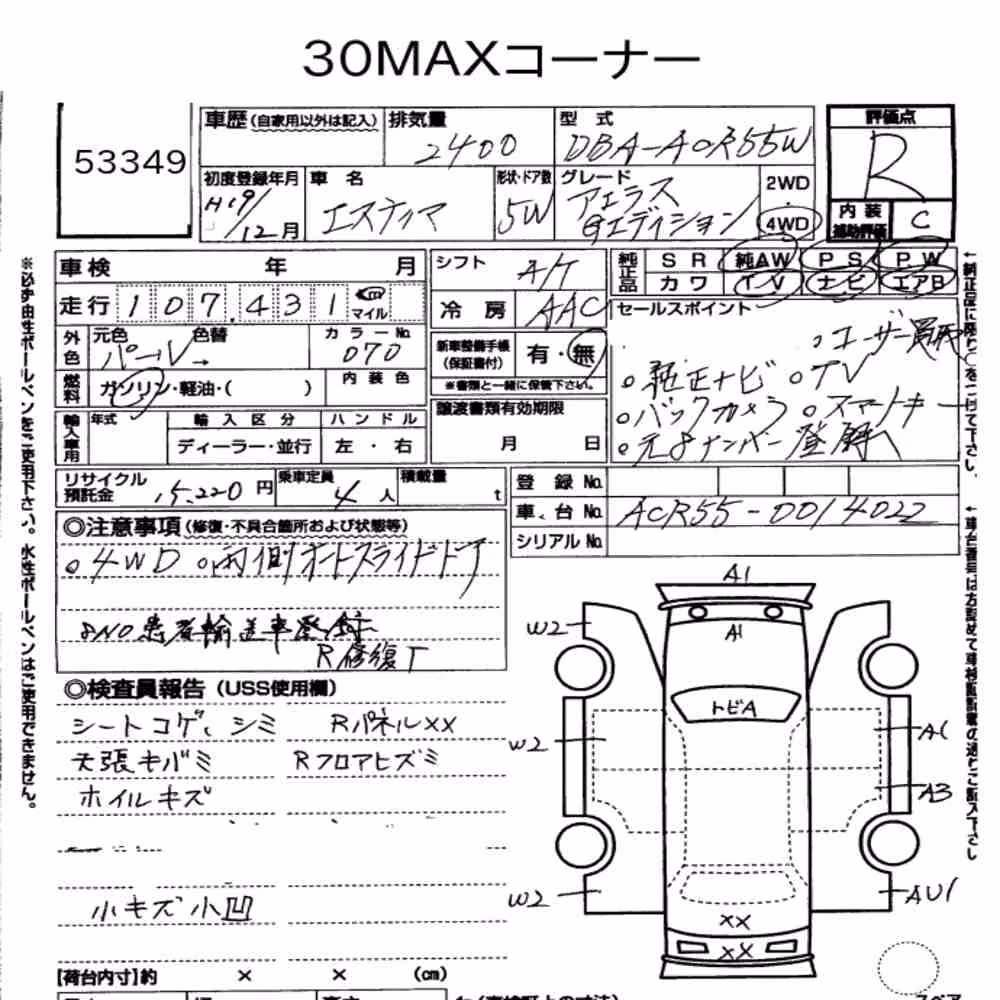 30MAXコーナー
53349
車歴(自家用以外は記入) 排気量 2400
型式 DBA-ACR55W
評価点 R
初度登録年月 H19/12月
車名 エスティマ
形状・ドア数 5W
グレード アエラス Gエディション
2WD・4WD
内装補助評価 C
車検 年 月
シフト A/T
純正品 SR 純AW PS PW
カワ TV ナビ エアB
走行 107,431 km マイル
冷房 AAC
セールスポイント
。ユーザー買取
外色 元色 パール→ 色替 カラーNo. 070
新車整備手帳(保証書付) 有・無
※書類と一緒に保管下さい。
。純正ナビ 。TV
燃料 ガソリン・軽油・( ) 内装色
。バックカメラ 。スマートキー
譲渡書類有効期限
月 日
。元8ナンバー登録
輸入車用 年式 輸入区分 ハンドル
ディーラー・並行 左・右
リサイクル預託金 15,220円 乗車定員 4人 積載量 t
登録No.
車台No. ACR55-0014022
シリアルNo.
◎注意事項(修復・不具合箇所および状態等)
。4WD 。両側オートスライドドア
8NO患者輸送車登録
R修復了
◎検査員報告(USS使用欄)
シートコゲ、シミ RパネルXX
天張キバミ Rフロアヒズミ
ホイルキズ
小キズ小凹
【荷台内寸】約 × × (cm)
A1
W2
A1
トビA
W2
A1
A3
W2
AU1
XX
XX
※必ず油性ボールペンをご使用下さい。水性ボールペンはご使用できません。